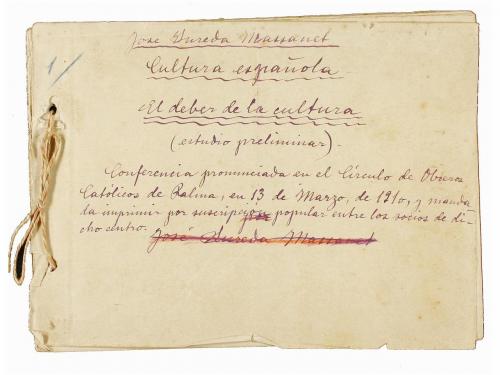 José Sureda Massanet
Cultura española
El deber de la cultura
(estudio preliminar).
1/
Conferencia pronunciada en el Círculo de Obreros
Católicos de Palma, en 13 de Marzo, de 1910, y manda
da imprimir por popular entre los socios de di-
cho centro.
José Sureda Massanet